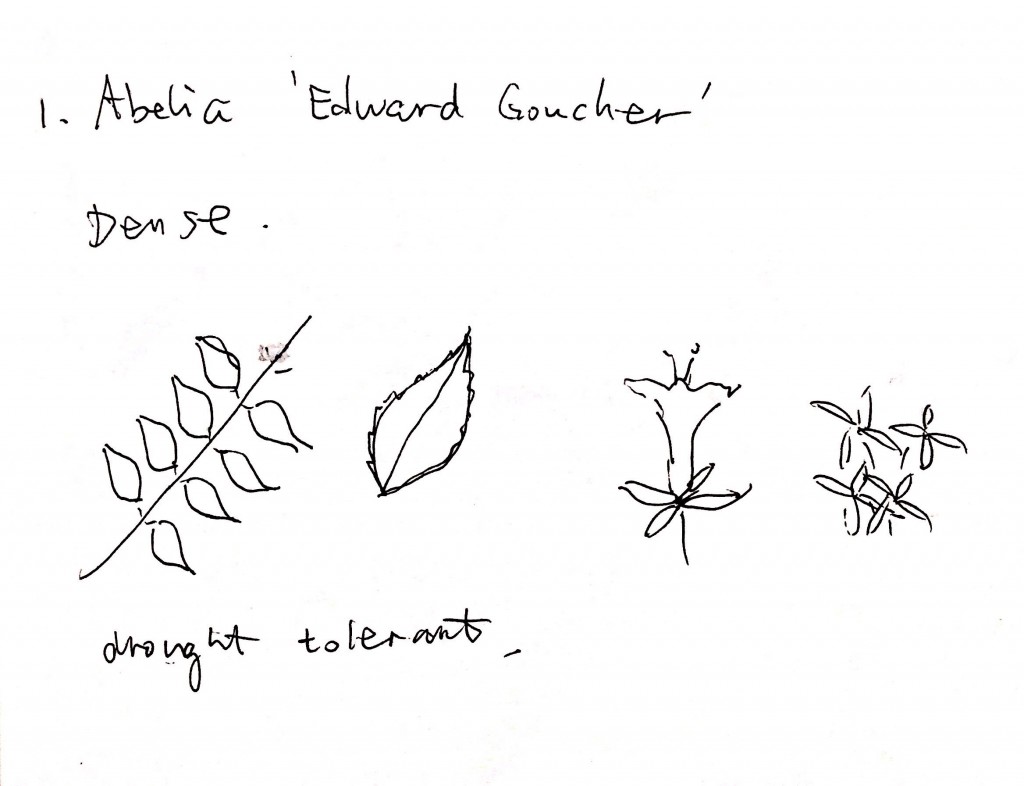 1. Abelia 'Edward Goucher'
Dense.
drought tolerant.